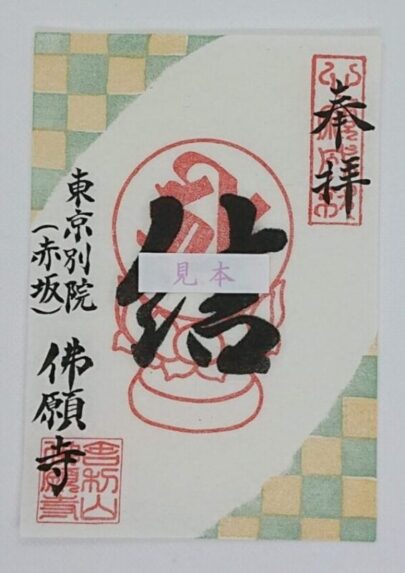 奉拝
結
見本
東京別院
(赤坂)
佛願寺